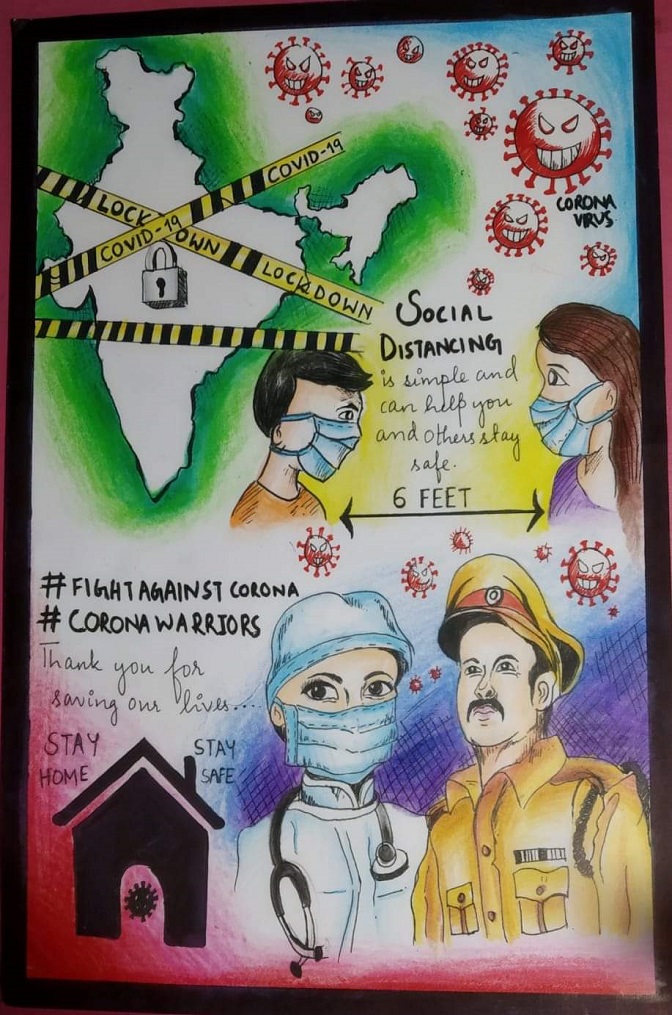 COVID-19
LOCK OWN LOCKDOWN
COVID-19
CORONA
VIRUS
SOCIAL
DISTANCING
is simple and
can help you
and others stay
safe.
6 FEET
# FIGHT AGAINST CORONA
# CORONA WARRIORS
Thank you for
saving our lives....
STAY
HOME
STAY
SAFE